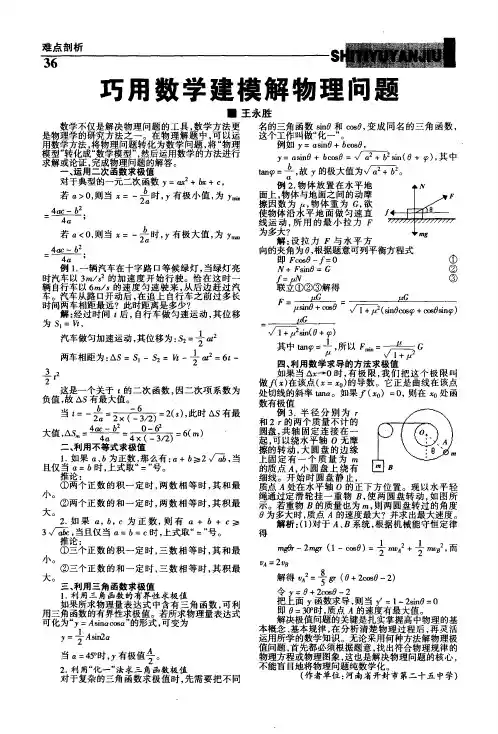 难点剖析
36
SHITIYUYANJIU
巧用数学建模解物理问题
■ 王永胜
数学不仅是解决物理问题的工具,数学方法更
是物理学的研究方法之一。在物理解题中,可以运
用数学方法,将物理问题转化为数学问题,将“物理
模型”转化成“数学模型”,然后运用数学的方法进行
求解或论证,完成物理问题的解答。
一、运用二次函数求极值
对于典型的一元二次函数 y = ax² + bx + c,
若 a > 0,则当 x = - b/2a 时,y 有极小值,为 ymin
= (4ac - b²)/4a;
若 a < 0,则当 x = - b/2a 时,y 有极大值,为 ymax
= (4ac - b²)/4a。
例 1. 一辆汽车在十字路口等候绿灯,当绿灯亮
时汽车以 3m/s² 的加速度开始行驶。恰在这时一
辆自行车以 6m/s 的速度匀速驶来,从后边赶过汽
车。汽车从路口开动后,在追上自行车之前过多长
时间两车相距最远?此时距离是多少?
解:经过时间 t 后,自行车做匀速运动,其位移
为 S₁ = Vt,
汽车做匀加速运动,其位移为:S₂ = 1/2 at²
两车相距为:ΔS = S₁ - S₂ = Vt - 1/2 at² = 6t -
3/2 t²
这是一个关于 t 的二次函数,因二次项系数为
负值,故 ΔS 有最大值。
当 t = - b/2a = -6/(2×(-3/2)) = 2(s),此时 ΔS 有最
大值,ΔSm = (4ac - b²)/4a = (0 - 6²)/(4×(-3/2)) = 6(m)
二、利用不等式求极值
1. 如果 a,b 为正数,那么有:a + b ≥ 2√ab,当
且仅当 a = b 时,上式取“=”号。
推论:
①两个正数的积一定时,两数相等时,其和最
小。
②两个正数的和一定时,两数相等时,其积最
大。
2. 如果 a, b, c 为正数,则有 a + b + c ≥
3√abc,当且仅当 a = b = c 时,上式取“=”号。
推论:
①三个正数的积一定时,三数相等时,其和最
小。
②三个正数的和一定时,三数相等时,其积最
大。
三、利用三角函数求极值
1. 利用三角函数的有界性求极值
如果所求物理量表达式中含有三角函数,可利
用三角函数的有界性求极值。若所求物理量表达式
可化为“y = Asinαcosα”的形式,可变为
y = 1/2 Asin2α
当 α = 45°时,y 有极值 A/2。
2. 利用“化一”法求三角函数极值
对于复杂的三角函数求极值时,先需要把不同
名的三角函数 sinθ 和 cosθ,变成同名的三角函数,
这个工作叫做“化一”。
例如 y = asinθ + bcosθ,
y = asinθ + bcosθ = √a² + b² sin(θ + φ),其中
tanφ = b/a,故 y 的极大值为√a² + b²。
例 2. 物体放置在水平地
面上,物体与地面之间的动摩
擦因数为 μ,物体重为 G,欲
使物体沿水平地面做匀速直
线运动,所用的最小拉力 F
为多大?
N
F
f
θ
mg
解:设拉力 F 与水平方
向的夹角为 θ,根据题意可列平衡方程式
即 Fcosθ - f = 0 ①
N + Fsinθ = G ②
f = μN ③
联立①②③解得
F = μG/(μsinθ + cosθ) = μG/(√1 + μ²(sinθcosφ + cosθsinφ))
= μG/(√1 + μ² sin(θ + φ))
其中 tanφ = 1/μ,所以 Fmin = μ/√1 + μ² G
四、利用数学求导的方法求极值
如果当 Δx→0 时,有极限,我们把这个极限叫
做 f(x)在该点(x = x₀)的导数。它正是曲线在该点
处切线的斜率 tanα。如果 f(x₀) = 0,则在 x₀ 处函
数有极值
例 3. 半径分别为 r
和 2 r 的两个质量不计的
圆盘,共轴固定连接在一
起,可以绕水平轴 O 无摩
擦的转动,大圆盘的边缘
上固定有一个质量为 m
的质点 A,小圆盘上绕有
细线。开始时圆盘静止,
O
A
θ
m
m
B
质点 A 处在水平轴 O 的正下方位置。现以水平轻
绳通过定滑轮挂一重物 B,使两圆盘转动,如图所
示。若重物 B 的质量也为 m,则两圆盘转过的角度
θ 为多大时,质点 A 的速度最大?并求出最大速度。
解析:(1)对于 A、B 系统,根据机械能守恒定律
得
mgθr - 2mgr (1 - cosθ) = 1/2 mvA² + 1/2 mvB²,而
vA = 2vB
解得 vA² = 8/5 gr (θ + 2cosθ - 2)
令 y = θ + 2cosθ - 2
把上面 y 函数求导,则当 y′ = 1 - 2sinθ = 0
即 θ = 30°时,质点 A 的速度有最大值。
解决极值问题的关键是扎实掌握高中物理的基
本概念、基本规律,在分析清楚物理过程后,再灵活
运用所学的数学知识。无论采用何种方法解物理极
值问题,首先都必须根据题意,找出符合物理规律的
物理方程或物理图象,这也是解决物理问题的核心,
不能盲目地将物理问题纯数学化。
(作者单位:河南省开封市第二十五中学)